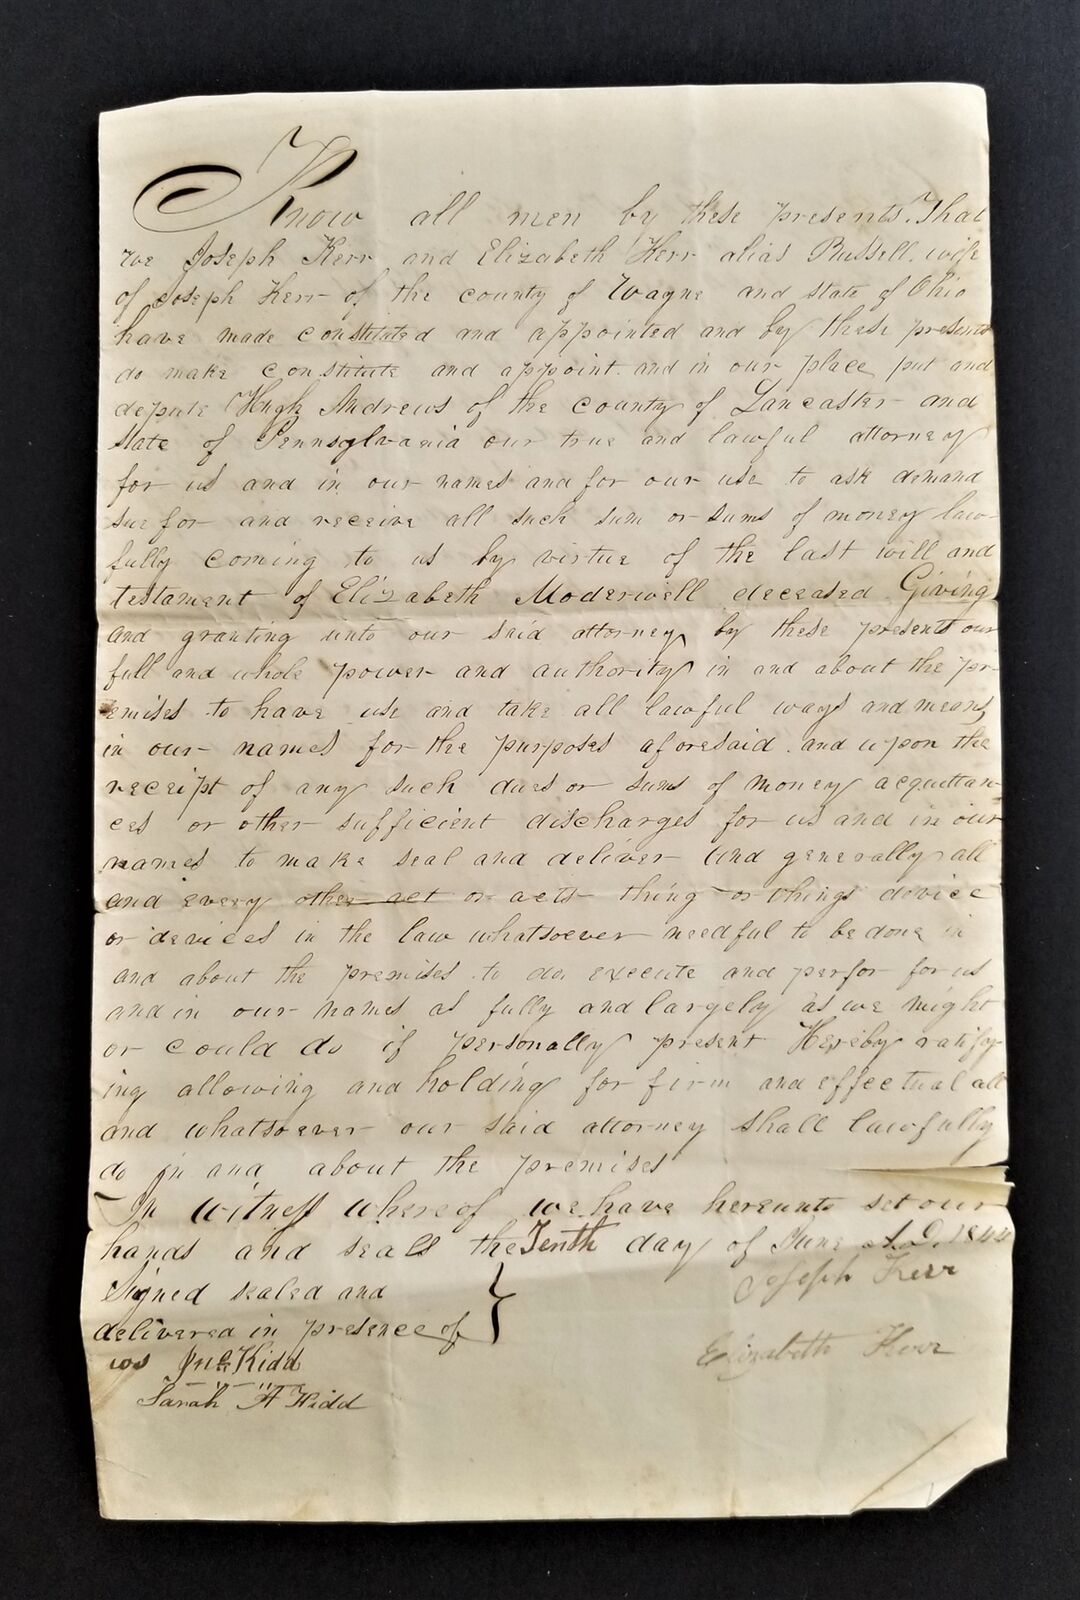 Know all men by these presents. That
we Joseph Kerr and Elizabeth Kerr alias Russell, wife
of Joseph Kerr of the county of Wayne and state of Ohio
have made constituted and appointed and by these presents
do make constitute and appoint and in our place put and
depute Hugh Andrews of the county of Lancaster and
state of Pennsylvania our true and lawful attorney
for us and in our names and for our use to ask demand
sue for and receive all such sum or sums of money law-
fully coming to us by virtue of the last will and
testament of Elizabeth Moderwell deceased Giving
and granting unto our said attorney by these presents our
full and whole power and authority in and about the pr-
emises to have use and take all lawful ways and means,
in our names for the purposes aforesaid. and upon the
receipt of any such dues or sums of money acquittan-
ces or other sufficient discharges for us and in our
names to make seal and deliver and generally all
and every other act or acts thing or things device
or devices in the law whatsoever needful to be done in
and about the premises to do, execute and perfor for us
and in our names as fully and largely as we might
or could do if personally present Hereby ratify-
ing allowing and holding for firm and effectual all
and whatsoever our said attorney shall lawfully
do in and about the premises
In witness whereof we have hereunto set our
hands and seals the Tenth day of June A.D. 1844
Signed sealed and
delivered in presence of
us Jno Kidd
Sarah A Kidd
Joseph Kerr
Elizabeth Kerr